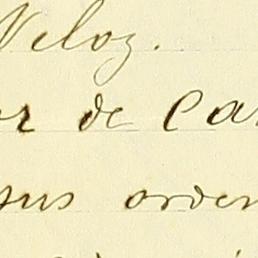 Veloz.
or de Ca
sus orden